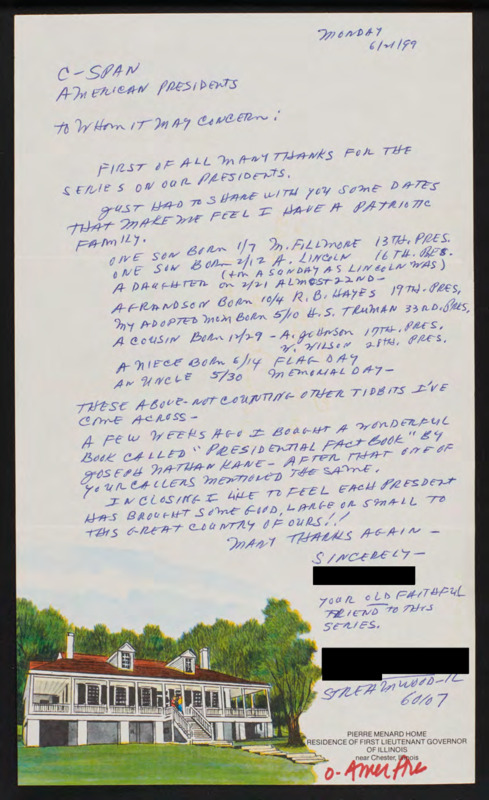 MONDAY
6/21/99
C-SPAN
AMERICAN PRESIDENTS
TO WHOM IT MAY CONCERN:
FIRST OF ALL MANY THANKS FOR THE
SERIES ON OUR PRESIDENTS.
JUST HAD TO SHARE WITH YOU SOME DATES
THAT MAKE ME FEEL I HAVE A PATRIOTIC
FAMILY.
ONE SON BORN 1/7 M. FILLMORE 13TH. PRES.
ONE SON BORN 2/12 A. LINCOLN 16TH. PRES.
(+ON A SONDAY AS LINCOLN WAS)
A DAUGHTER ON 2/21 ALMOST 22ND-
A GRANDSON BORN 10/4 R. B. HAYES 19TH. PRES,
MY ADOPTED MOM BORN 5/10 H. S. TRUMAN 33RD. PRES,
A COUSIN BORN 12/29 - A. JOHNSON 17TH. PRES.
W. WILSON 28TH. PRES.
A NIECE BORN 6/14 FLAG DAY
AN UNCLE 5/30 MEMORIAL DAY-
THESE ABOVE-NOT COUNTING OTHER TIDBITS I'VE
COME ACROSS-
A FEW WEEKS AGO I BOUGHT A WONDERFUL
BOOK CALLED "PRESIDENTIAL FACT BOOK" BY
JOSEPH NATHAN KANE- AFTER THAT ONE OF
YOUR CALLERS MENTIONED THE SAME.
IN CLOSING I LIKE TO FEEL EACH PRESIDENT
HAS BROUGHT SOME GOOD, LARGE OR SMALL TO
THIS GREAT COUNTRY OF OURS!!
MANY THANKS AGAIN -
SINCERELY-
YOUR OLD FAITHFUL
FRIEND TO THIS
SERIES.
STREAMWOOD-IL
60107
PIERRE MENARD HOME
RESIDENCE OF FIRST LIEUTENANT GOVERNOR
OF ILLINOIS
near Chester, Illinois
O-Amer Pre